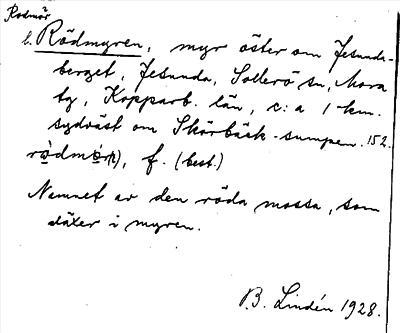 Rödmyr
l. Rödmyren, myr öster om Jesunda-
berget, Jesunda, Sollerö sn, Mora
tg, Kopparb. län, c:a 1 km.
sydväst om Skärbäck-sumpen. 152.
f. (best.)
Namnet av den röda mossa, som
växer i myren.
B. Lindén 1928.